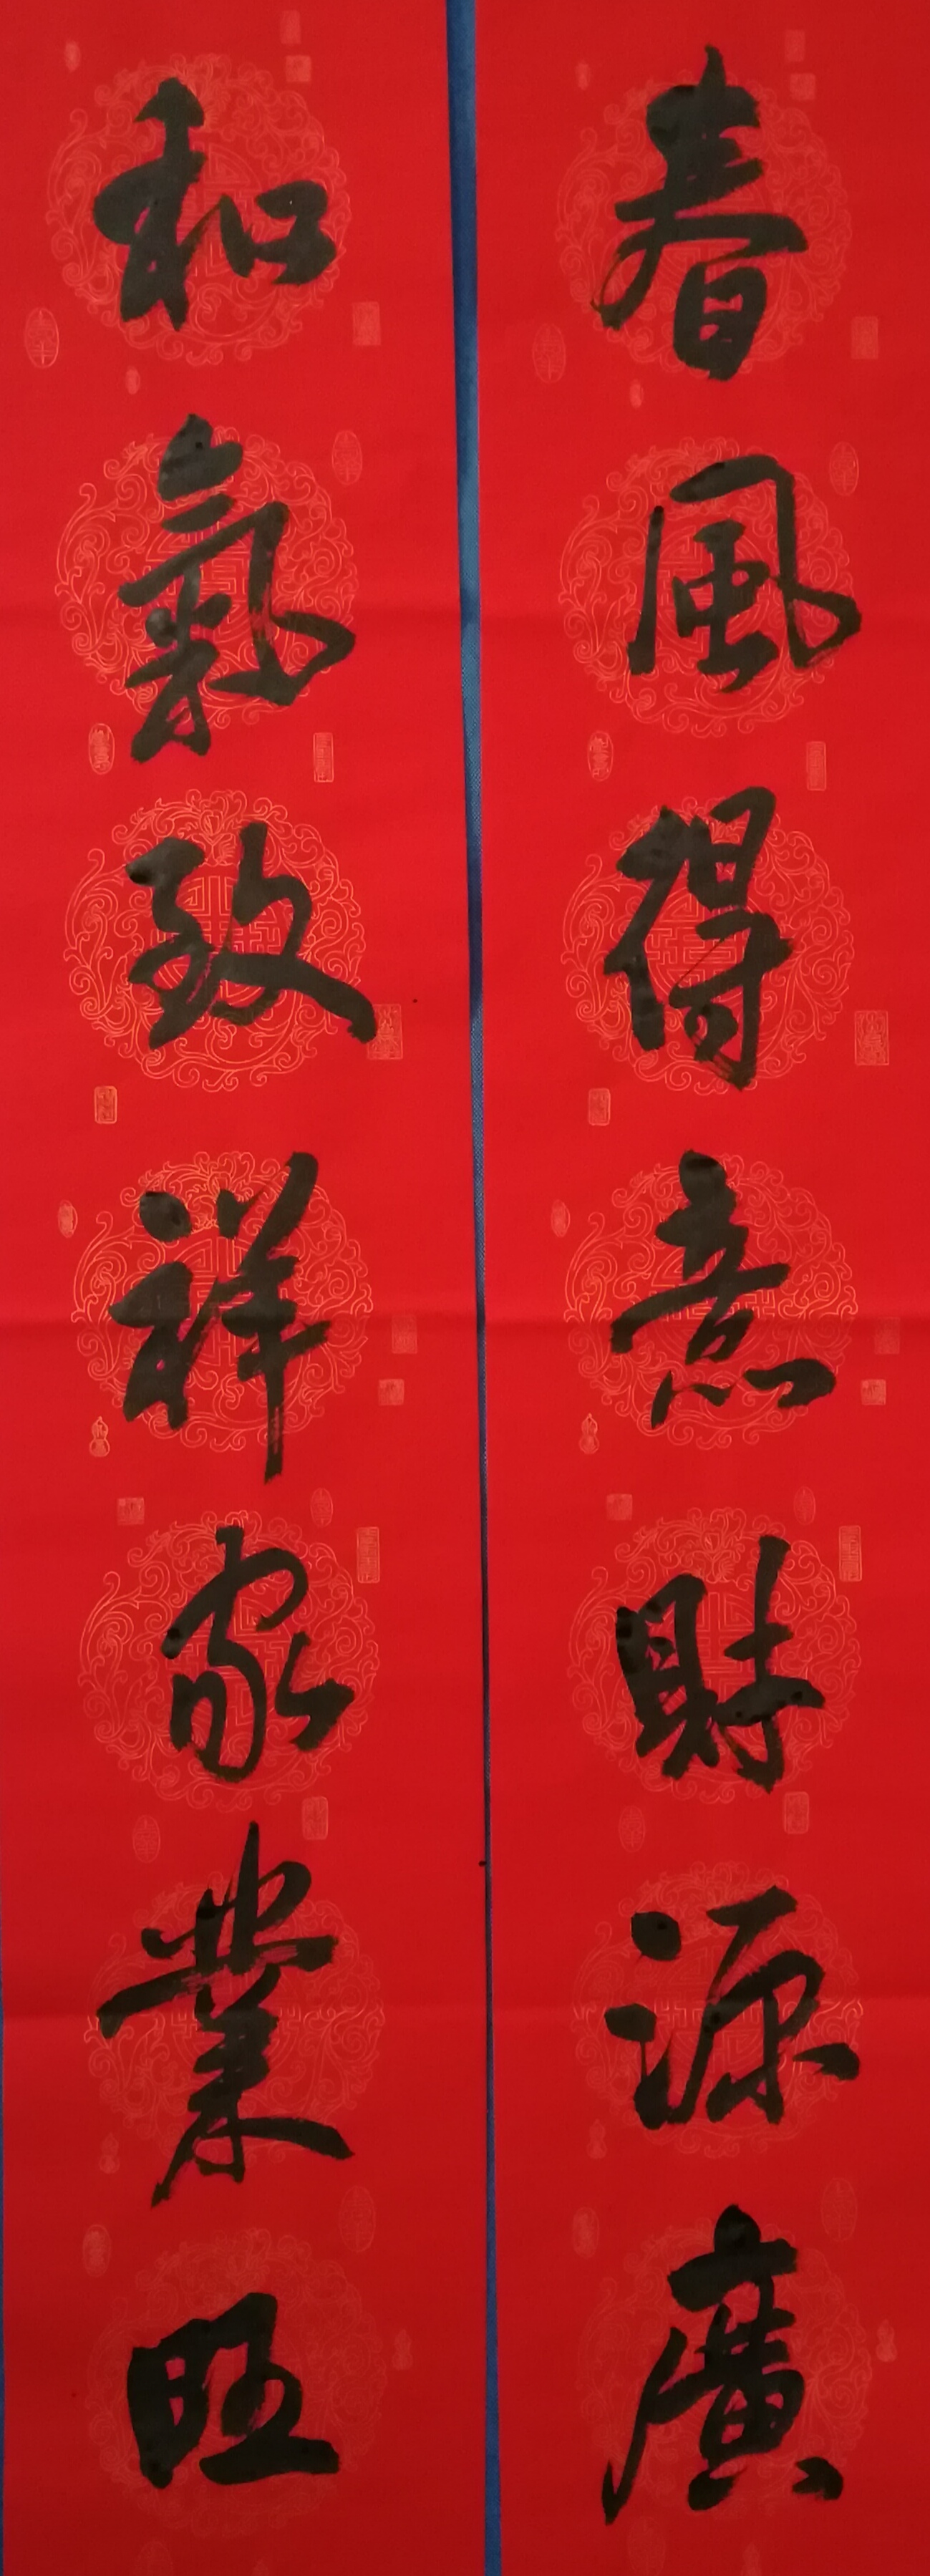 春風得意財源廣
和氣致祥家業旺